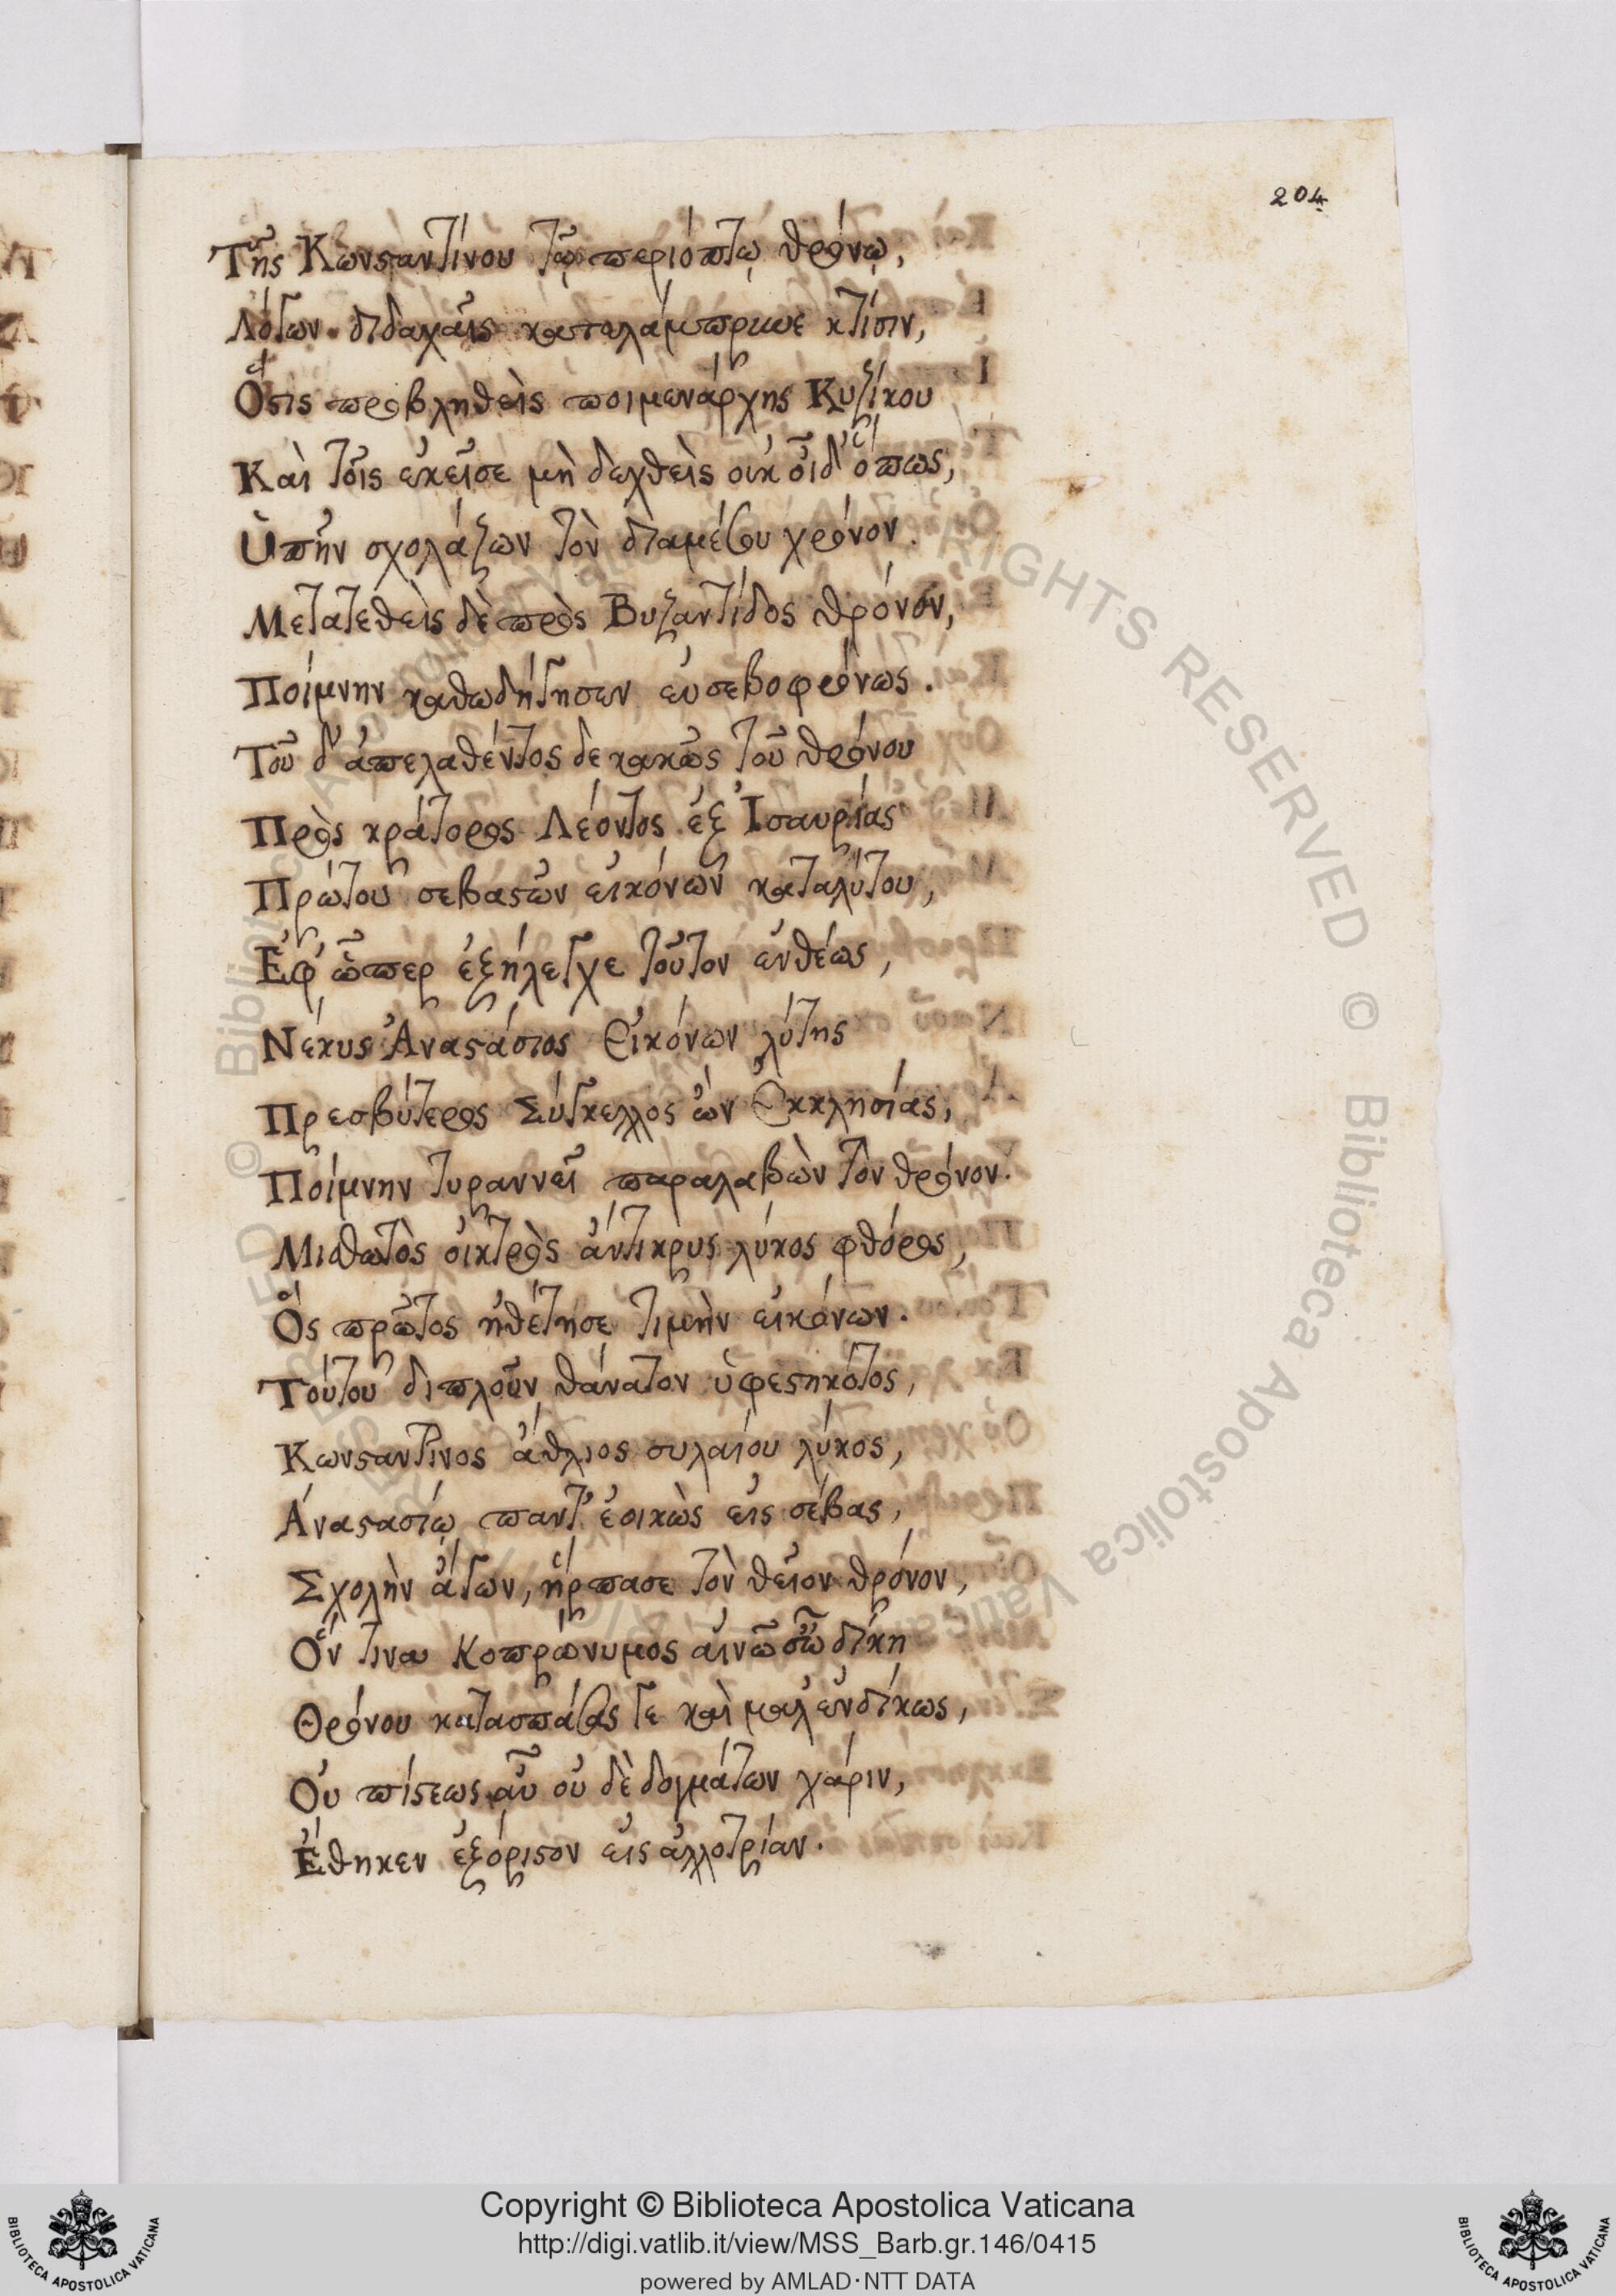 204
Τῆς Κωνσταντίνου τῷ περιόπτῳ θρόνῳ,
Λόγων διδαχαῖς κατελάμπρυνε κτίσιν,
Ὅστις προβληθεὶς ποιμενάρχης Κυζίκου
Καὶ τοῖς ἐκεῖσε μὴ δεχθεὶς οὐκ οἶδ' ὅπως,
Ὑπῆν σχολάζων τὸν διαμέσου χρόνον.
Μετατεθεὶς δὲ πρὸς Βυζαντίδος θρόνον,
Ποίμνην καθωδήγησεν εὐσεβοφρόνως.
Τοῦ δ' ἀπελαθέντος δε κακῶς τοῦ θρόνου
Πρὸς κράτορος Λέοντος ἐξ Ἰσαυρίας
Πρώτου σεβαστῶν εἰκόνων καταλύτου,
Ἐφ' ᾧπερ ἐξήλεγχε τοῦτον ἐνθέως,
Νέκυς Ἀναστάσιος Εἰκόνων λύτης
Πρεσβύτερος Σύγκελλος ὢν Ἐκκλησίας,
Ποίμνην τυραννεῖ παραλαβὼν τὸν θρόνον.
Μισθωτὸς οἰκτρὸς ἄντικρυς λύκος φθόρος,
Ὃς πρῶτος ἠθέτησε τιμὴν εἰκόνων.
Τούτου διπλοῦν θάνατον ὑφεστηκότος,
Κωνσταντῖνος ἄθλιος συλαίου λύκος,
Ἀναστασίῳ παντ' ἐοικὼς εἰς σέβας,
Σχολὴν ἄγων, ἥρπασε τὸν θεῖον θρόνον,
Ὅν τινα Κοπρώνυμος αἰνῶ σῷ δίκῃ
Θρόνου κατασπάσας τε καὶ μαλ' ἐνδίκως,
Οὐ πίστεως αὖ οὐ δὲ δογμάτων χάριν,
Ἔθηκεν ἐξόριστον εἰς ἀλλοτρίαν.
© Biblioteca Apostolica Vaticana
RIGHTS RESERVED © Biblioteca Apostolica Vaticana
Copyright © Biblioteca Apostolica Vaticana
http://digi.vatlib.it/view/MSS_Barb.gr.146/0415
powered by AMLAD·NTT DATA
BIBLIOTECA APOSTOLICA VATICANA
BIBLIOTECA APOSTOLICA VATICANA